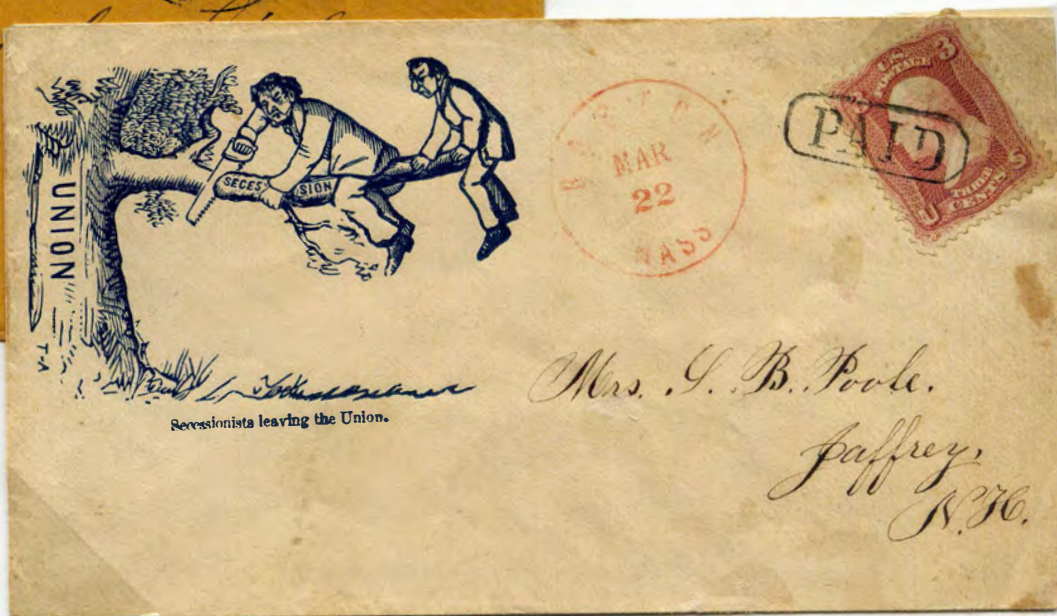 UNION
SECESSION
T-A
Secessionists leaving the Union.
BOSTON
MAR
22
MASS
PAID
U.S. POSTAGE
3
3
THREE CENTS
U
S
Mrs. S. B. Poole.
Jaffrey,
N. H.